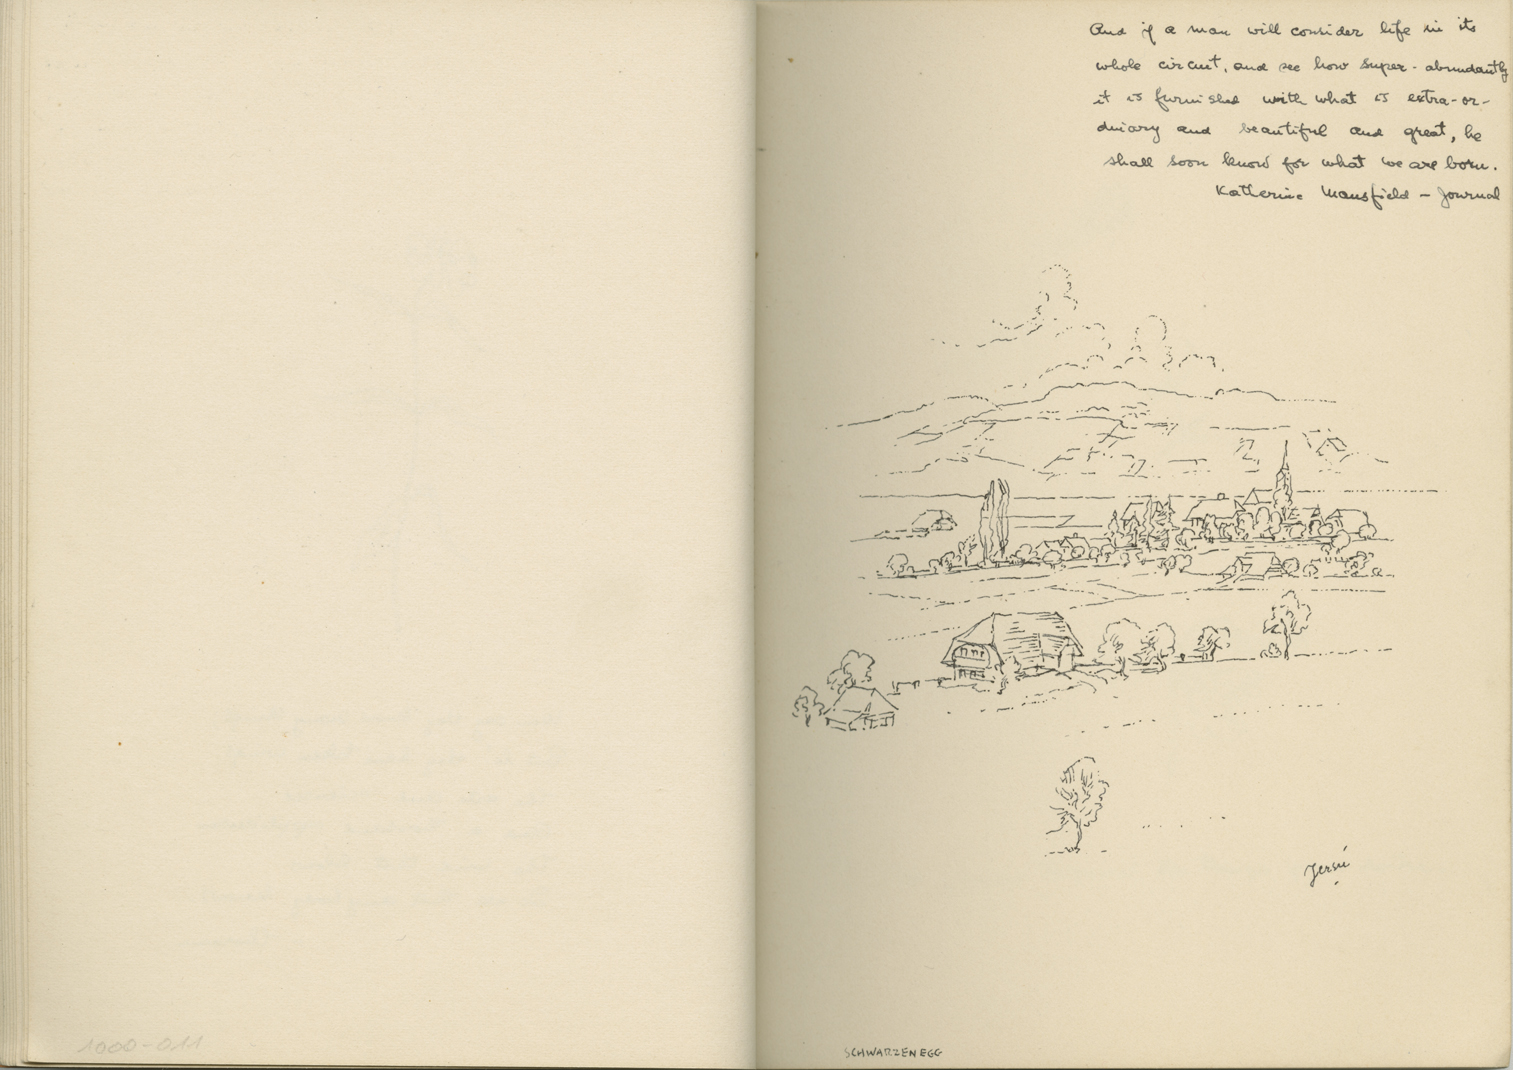 And if a man will consider life in its
whole circuit, and see how super-abundantly
it is furnished with what is extra-or-
dinary and beautiful and great, he
shall soon know for what we are born.
Katherine Mansfield - Journal
SCHWARZENEGG
1000-011